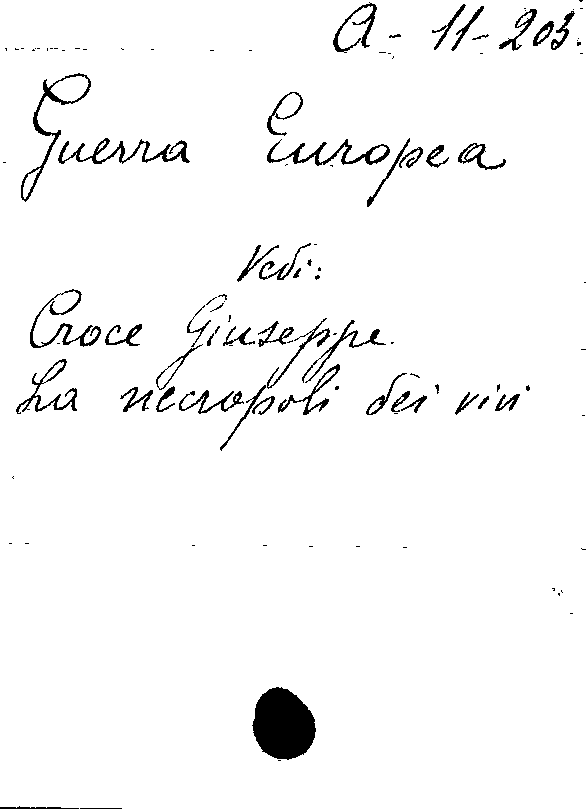 A-11-203.
Guerra Europea
Vedi:
Croce Giuseppe.
La necropoli dei vivi